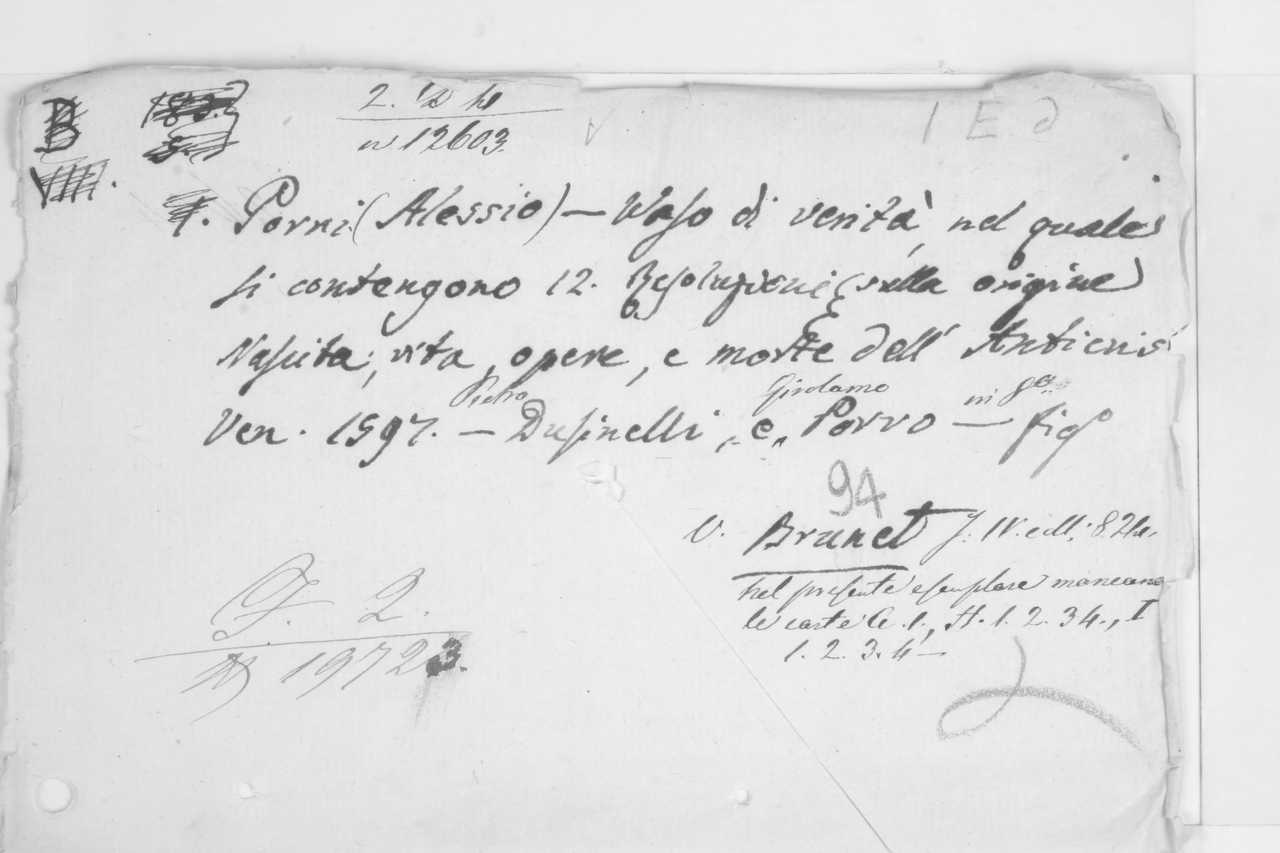 B
VIIII.
2. D h
n 12603.
V
1 E d
Porri (Alessio) — Vaso di verità, nel quale
si contengono 12. Resoluzioni (sulla origine
Nascita, vita, opere, e morte dell' Anticris
Pietro Girolamo in 8º
Ven. 1597. — Dusinelli „e„ Porro — figº
94
V. Brunet J. IV. edit: 824.
nel presente esemplare mancano
le carte A. 1., H. 1. 2. 3 4., I
1. 2. 3. 4 —
F. 2.
N 19723.